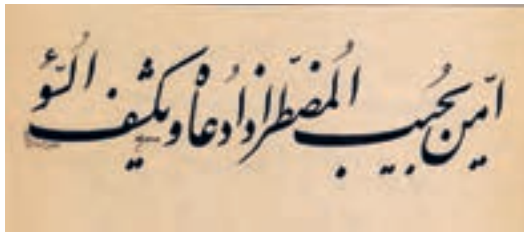 امّن یُجیب المُضطّر اذا دُعاهُ و یکشف السّوُء